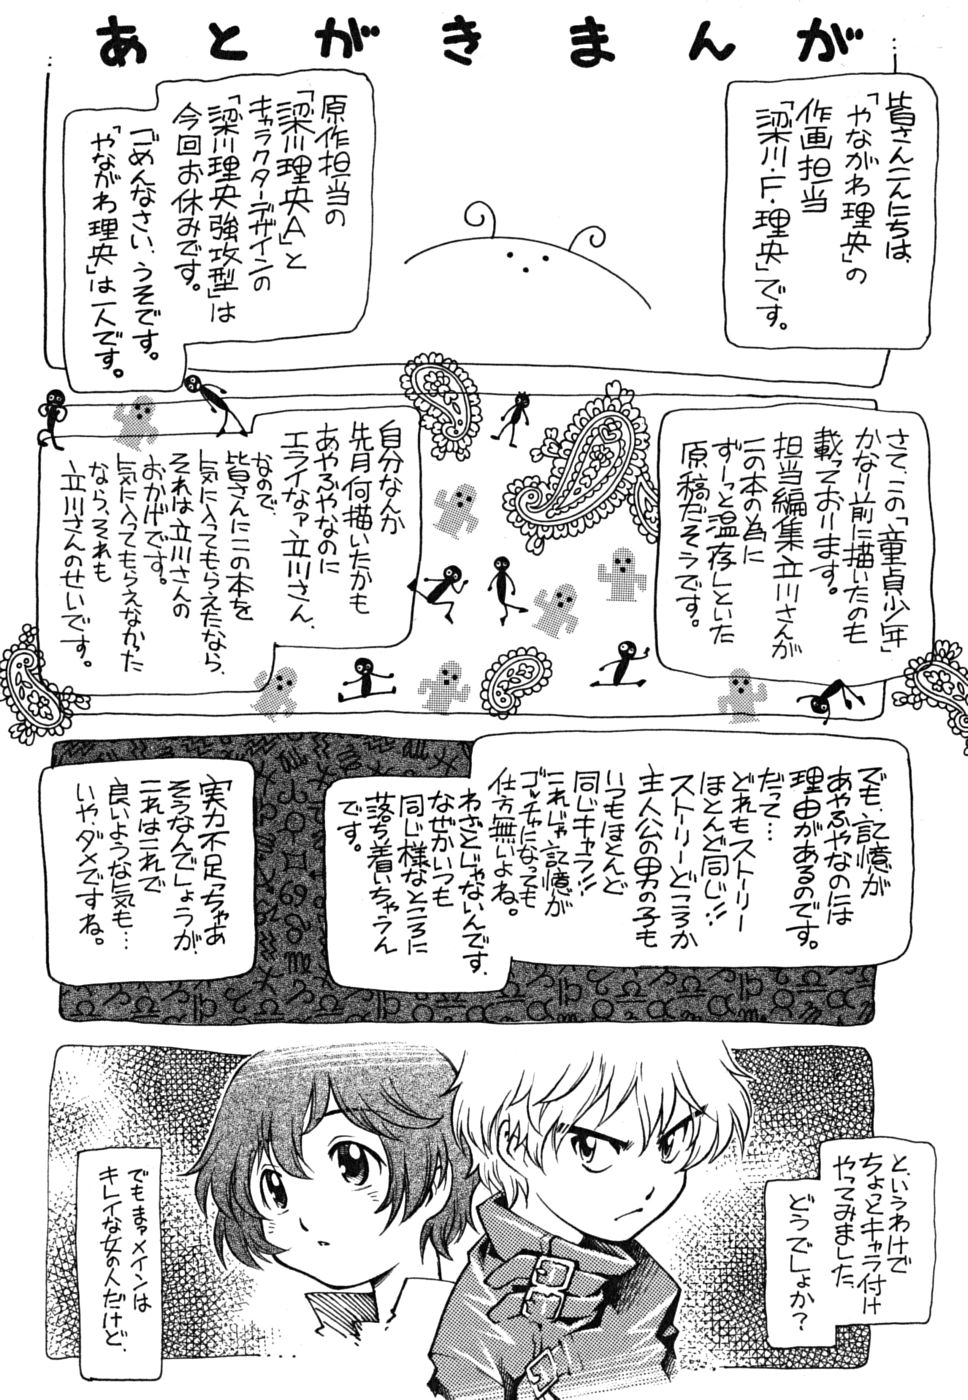 あとがきまんが
皆さんこんにちは、
「やながわ理央」の
作画担当
「梁川・F・理央」です。
原作担当の
「梁川理央A」と
キャラクターデザインの
「梁川理央強攻型」は
今回お休みです。
「ごめんなさい、うそです。
「やながわ理央」は一人です。
さて、この「童貞少年」
かなり前に描いたのも
載っております。
担当編集立川さんが
この本の為に
ずーっと温存しといた
原稿だそうです。
自分なんか
先月何描いたかも
あやふやなのに
エライなァ立川さん、
なので、
皆さんにこの本を
気に入ってもらえたなら、
それは立川さんの
おかげです。
気に入ってもらえなかった
なら、それも
立川さんのせいです。
でも、記憶が
あやふやなのには
理由があるのです。
だって…
どれもストーリー
ほとんど同じ!!
ストーリーどころか
主人公の男の子も
いつもほとんど
同じキャラ!!
これじゃ記憶が
ゴッチャになっても
仕方無いよね。
わざとじゃないんです、
なぜかいつも
同じ様なところに
落ち着いちゃうん
です。
実力不足っちゃあ
そうなんでしょうが、
これはこれで
良いような気も…
いや、ダメですね。
と、いうわけで
ちょっとキャラ付け
やってみました
どうでしょか?
でもまァメインは
キレイな女の人だけど、